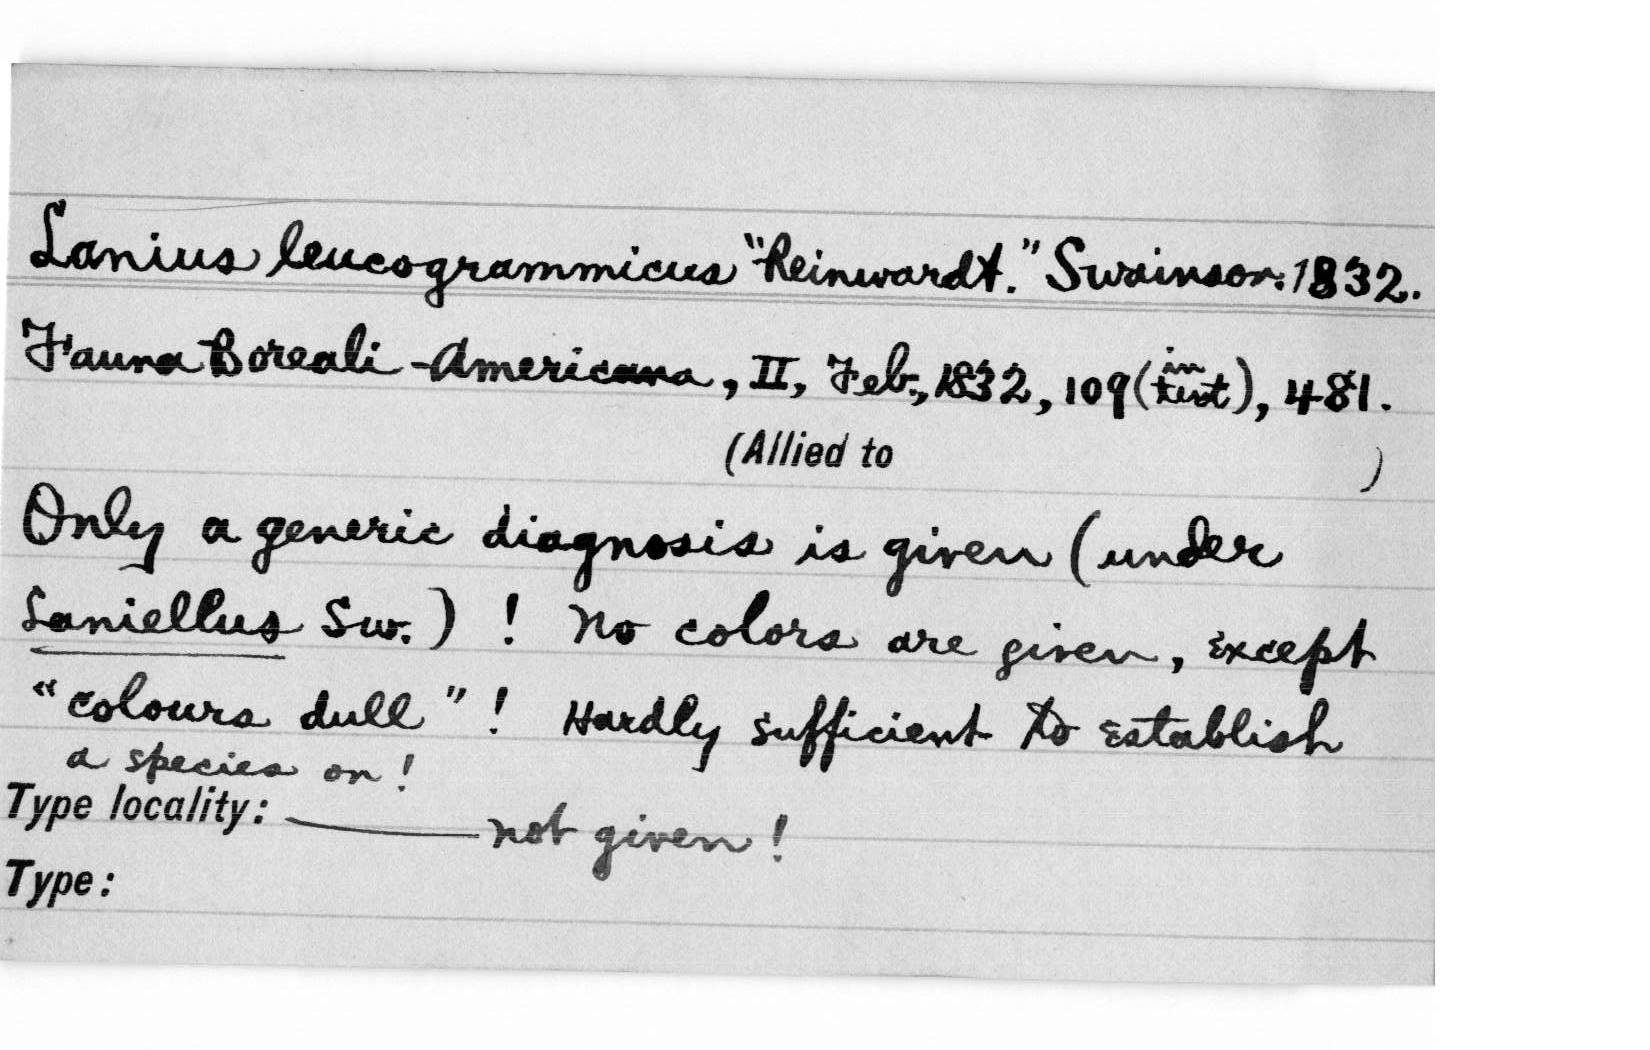 Lanius leucogrammicus "Reinwardt." Swainson. 1832.
Fauna Boreali-Americana, II, Feb., 1832, 109 (in text), 481.
(Allied to )
Only a generic diagnosis is given (under
Laniellus Sw.) ! No colors are given, except
"colours dull" ! Hardly sufficient to establish
a species on !
Type locality: not given !
Type: